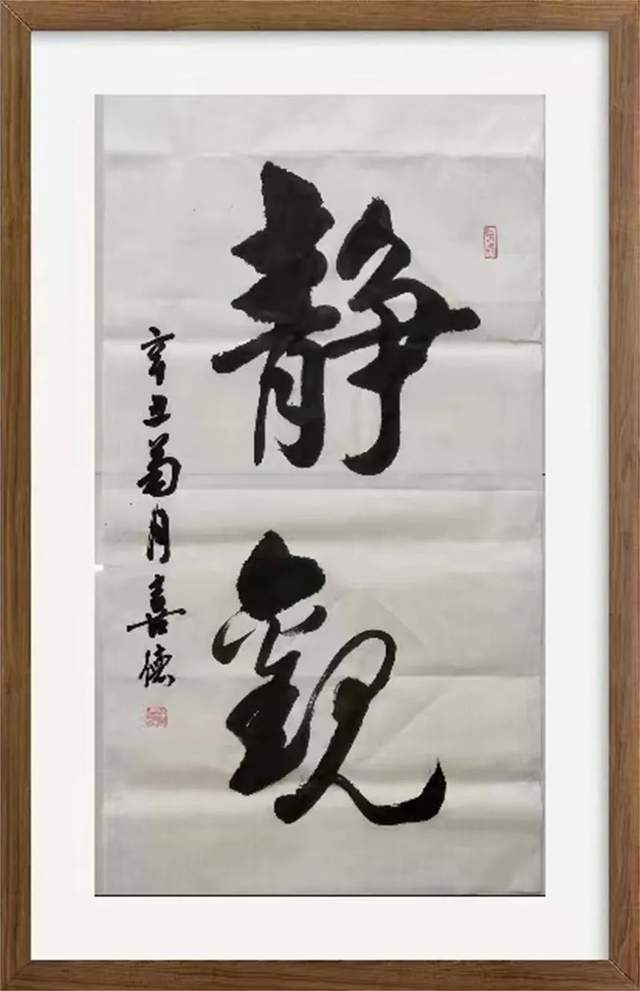 靜觀
辛丑菊月喜德